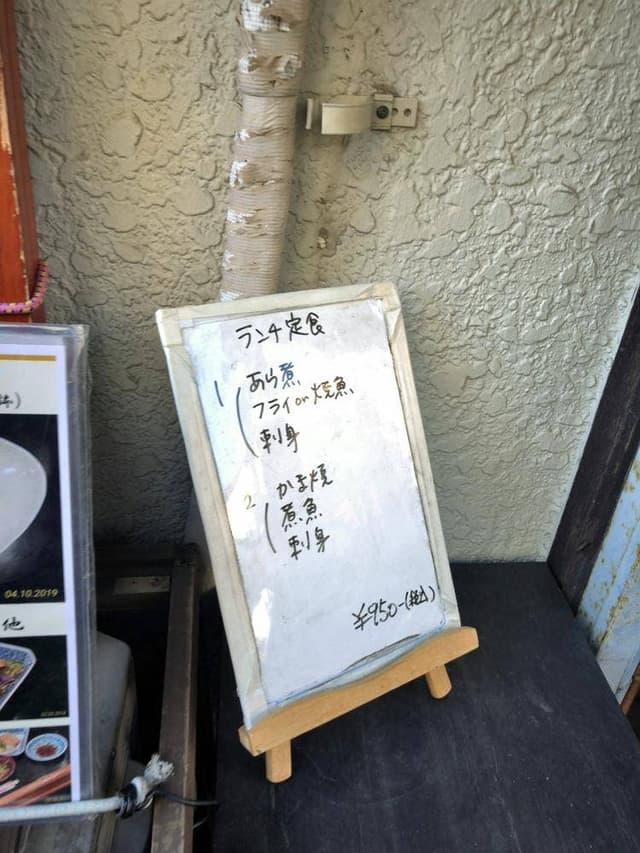 ランチ定食
1 あら煮
フライor焼魚
刺身
2 かま焼
煮魚
刺身
¥950-(税込)
04.10.2019
他